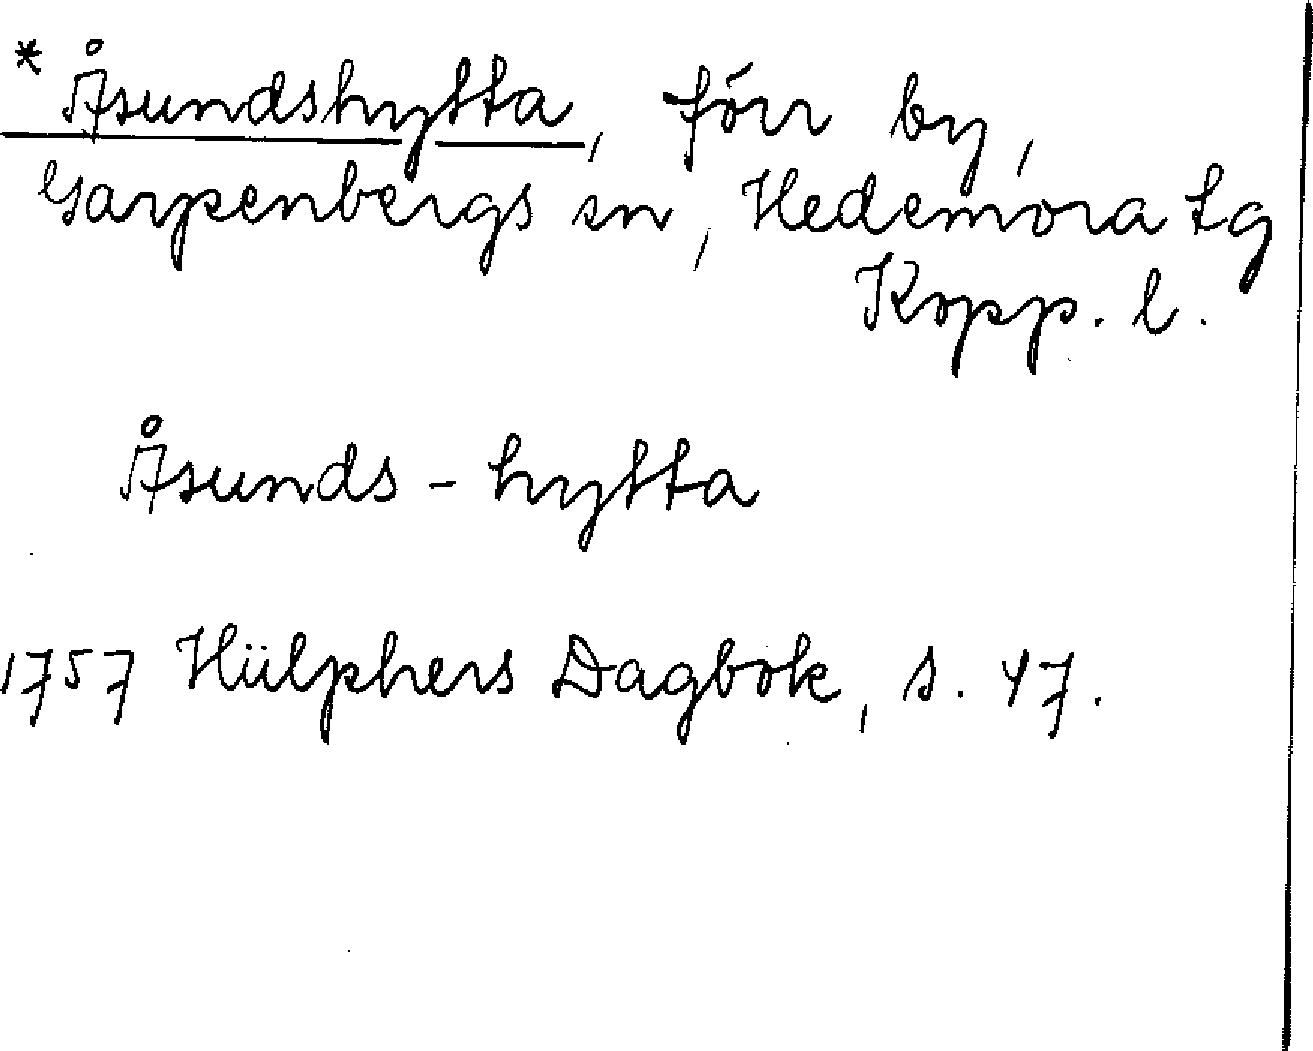 * Åsundshytta, förr by,
Garpenbergs sn, Hedemora tg
Kopp. l.
Åsunds - hytta
1757 Hülphers Dagbok, s. 47.